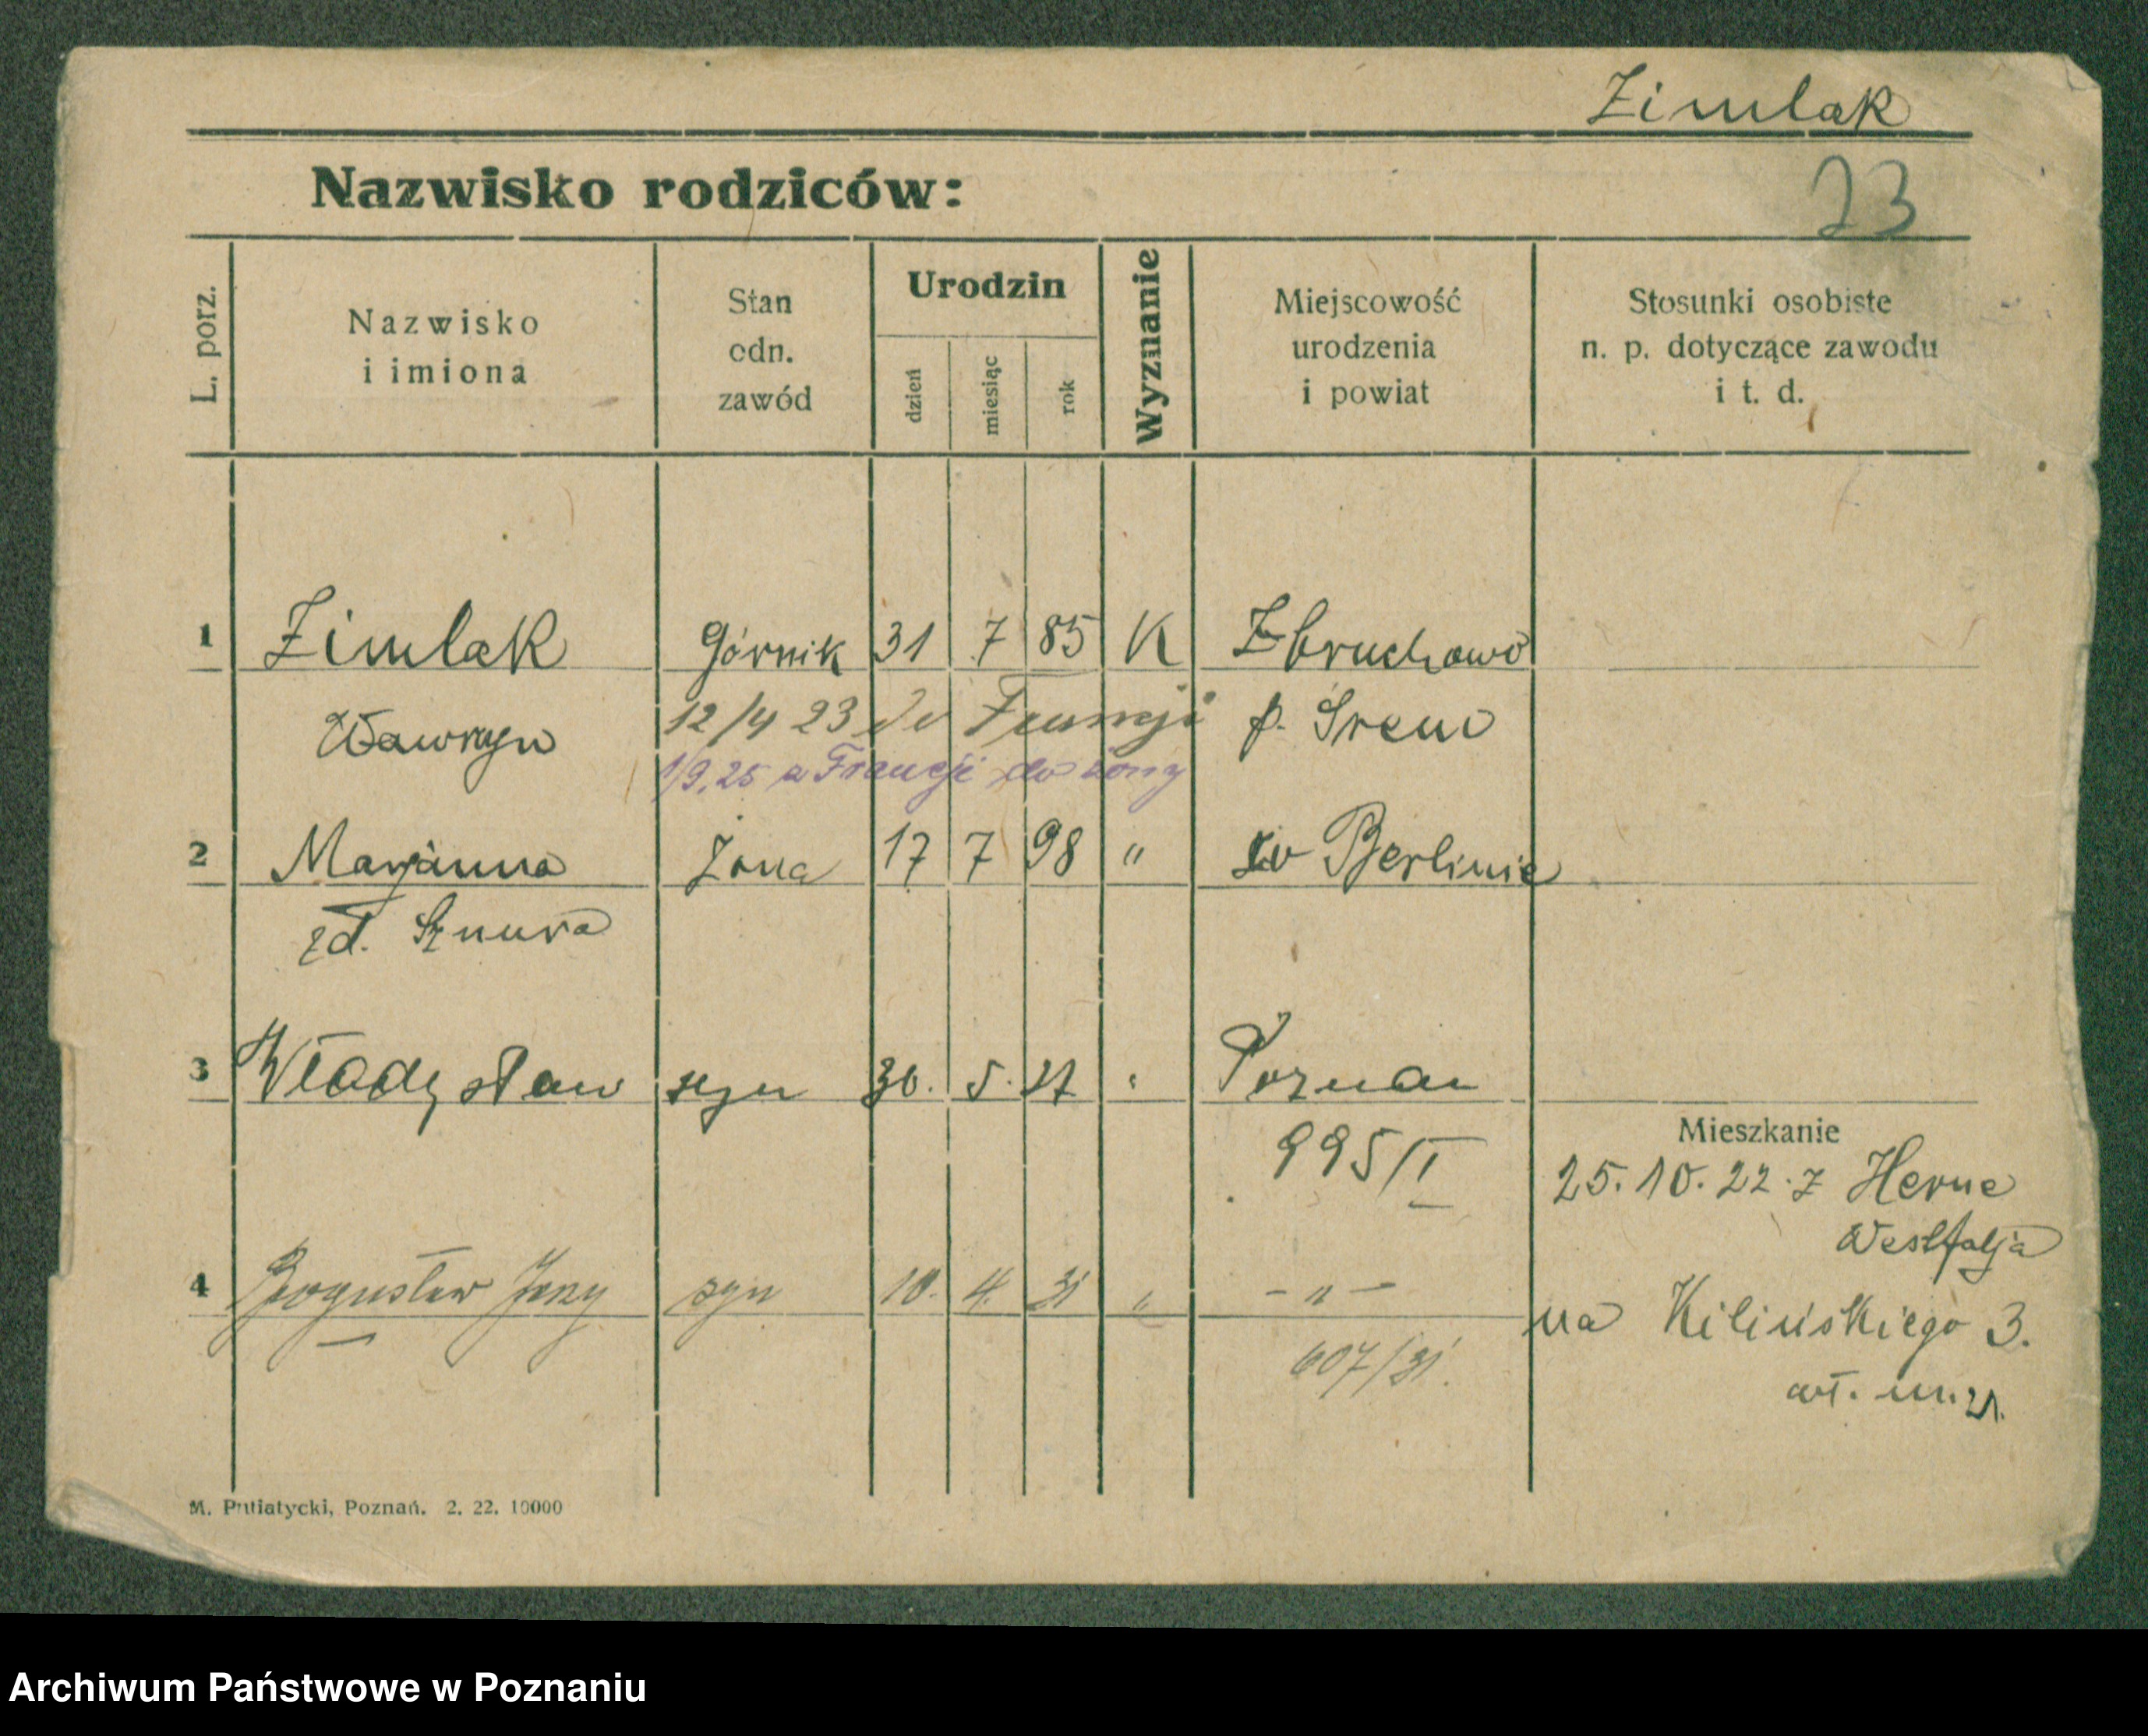 Zimlak
Nazwisko rodziców:
23
L. porz.
Nazwisko
i imiona
Stan
odn.
zawód
Urodzin
dzień
miesiąc
rok
Wyznanie
Miejscowość
urodzenia
i powiat
Stosunki osobiste
n. p. dotyczące zawodu
i t. d.
1 Zimlak Górnik 31 7 85 K Zbruchowo
Wawrzyn 12/4 23 do Francji p. Śrem
1/9. 25 z Francji do żony
2 Marjanna żona 17 7 98 " w Berlinie
zd. Sznura
3 Władysław syn 30. 5. 27 " Poznań
995/I
Mieszkanie
25. 10. 22. z Herne
Westfalja
4 Bogusław Jerzy syn 10. 4. 31 " - " -
na Kilińskiego 3.
607/31.
wł. m. 21.
M. Putiatycki, Poznań. 2. 22. 10000
Archiwum Państwowe w Poznaniu